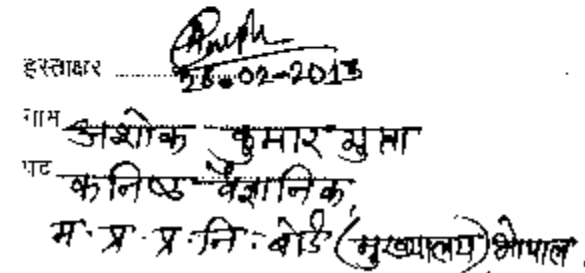 हस्ताक्षर
26.02-2013
नाम अशोक कुमार गुप्ता
पद कनिष्ठ वैज्ञानिक,
म.प्र.प्र.नि.बोर्ड (मुख्यालय) भोपाल